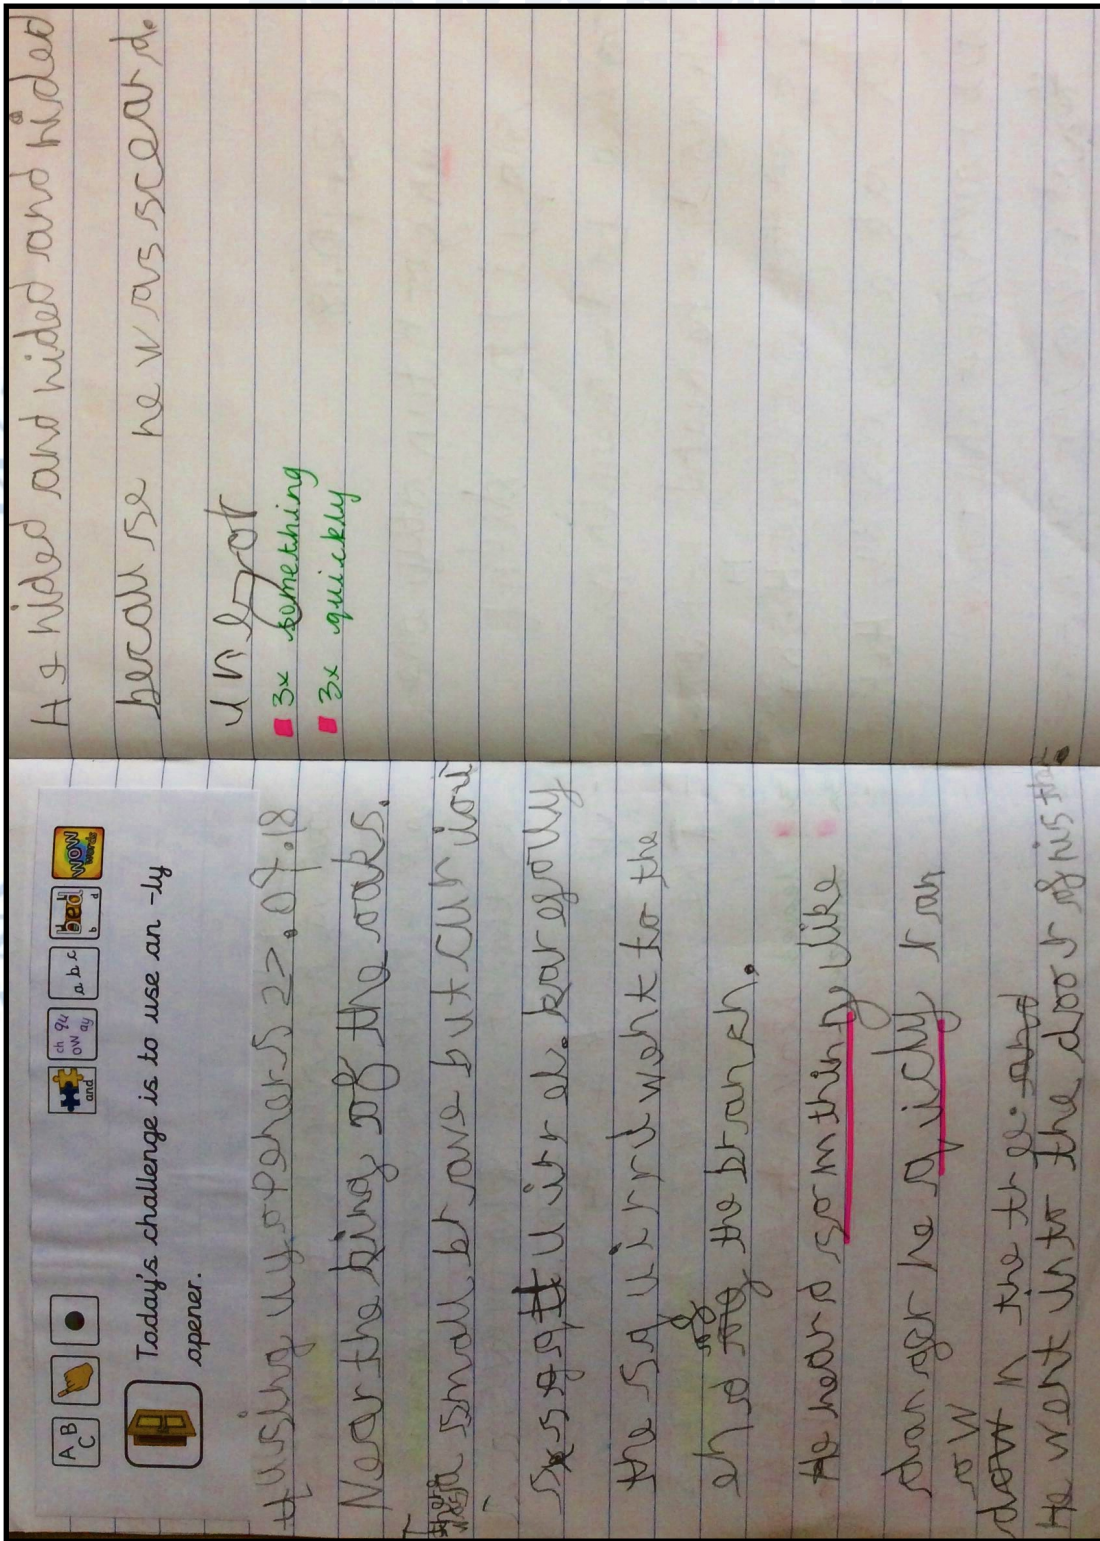 A B C
and
ch qu ow ay
a b c
bed
b d
WOW words
Today's challenge is to use an -ly
opener.
using ly openers 27.09.18
Near the king of the oaks.
there was a small brave but curiout
squirrel. karefully
the squirrul went to the
end of the branch.
He heard somthing like
danger he qicly ran
dow n the tre and
He went into the door of his tree.
He hided and hided and hided
because he was sceard.
3x something
3x quickly